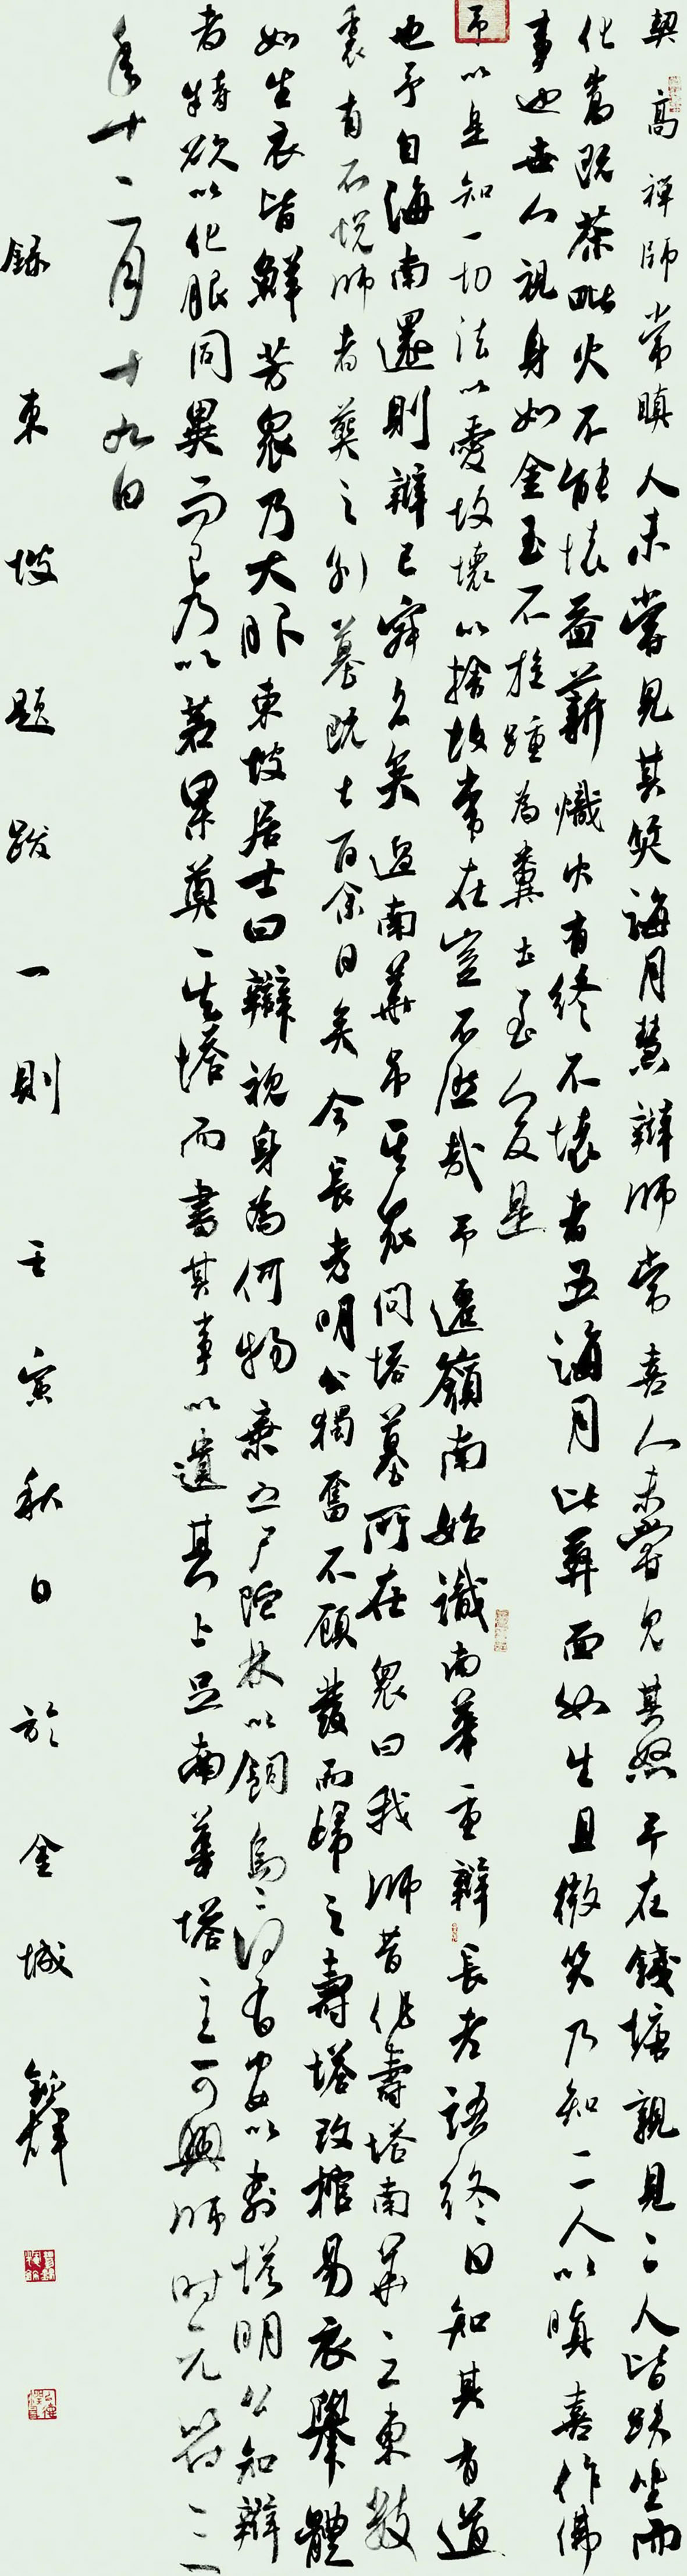 契嵩禪師常瞋人未嘗見其笑海月慧辯師常喜人未嘗見其怒予在錢塘親見二人皆趺坐而
化嵩既茶毗火不能壞益薪熾火有終不壞者五海月比葬面如生且微笑乃知二人以瞋喜作佛
事也世人視身如金玉不旋踵為糞土至人反是
予以是知一切法以愛故壞以捨故常在豈不然哉予遷嶺南始識南華重辯長老語終日知其有道
也予自海南還則辯已寂久矣過南華弔其眾問塔墓所在眾曰我師昔作壽塔南華之東數
里有不悅師者葬之別墓既七百余日矣今長老明公獨奮不顧發而歸之壽塔改棺易衣舉體
如生衣皆鮮芳眾乃大服東坡居士曰辯視身為何物棄之尸陁林以飼烏烏何有安以壽塔明公知辯
者特欲以化服同異而已乃以茗果奠其塔而書其事以遺其上足南華塔主可興師時元符三
年十二月十九日
錄東坡題跋一則壬寅秋日於金城